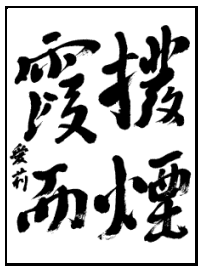 撥煙
霞而
愛莉